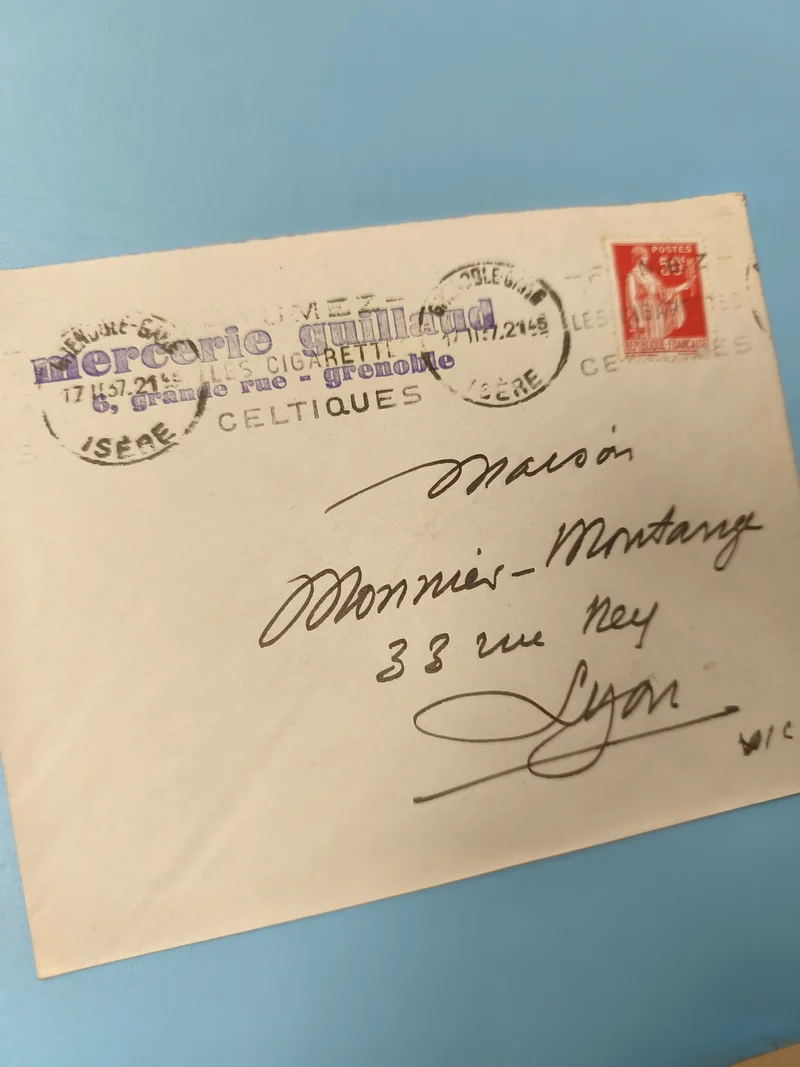 POSTES
50c
RÉPUBLIQUE-FRANÇAISE
mercerie guillaud
6, grande rue - grenoble
GRENOBLE-GARE
17 II 37.21 45
ISÈRE
FUMEZ
LES CIGARETTES
CELTIQUES
GRENOBLE-GARE
17 II 37.21 45
ISÈRE
LES CIGARETTES
Maison
Monnier-Montange
33 rue Ney
Lyon